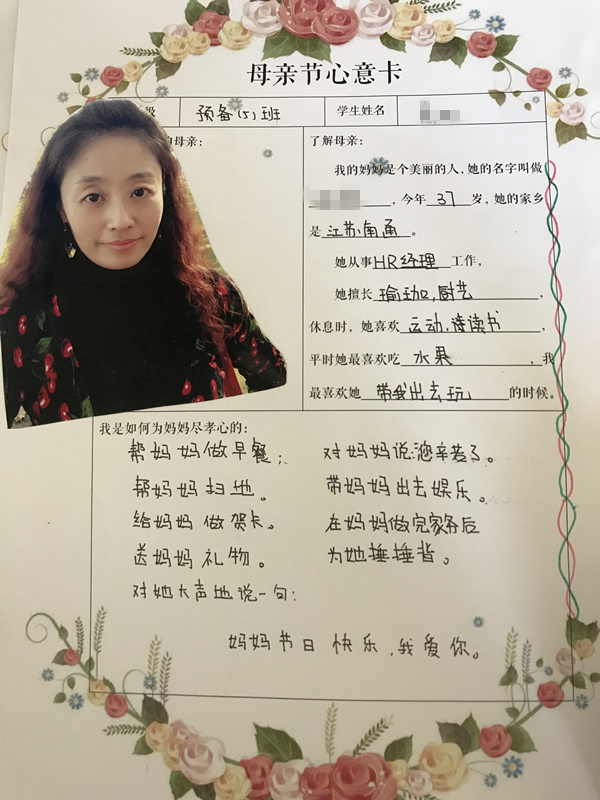 母亲节心意卡
级 预备(5)班 学生姓名
母亲:
了解母亲:
我的妈妈是个美丽的人,她的名字叫做
,今年37岁,她的家乡
是江苏南通。
她从事HR经理工作,
她擅长瑜珈,厨艺,
休息时,她喜欢运动,读书,
平时她最喜欢吃水果,我
最喜欢她带我出去玩的时候。
我是如何为妈妈尽孝心的:
帮妈妈做早餐; 对妈妈说:您辛苦了。
帮妈妈扫地。 带妈妈出去娱乐。
给妈妈做贺卡。 在妈妈做完家务后
送妈妈礼物。 为她捶捶背。
对她大声地说一句:
妈妈节日快乐,我爱你。